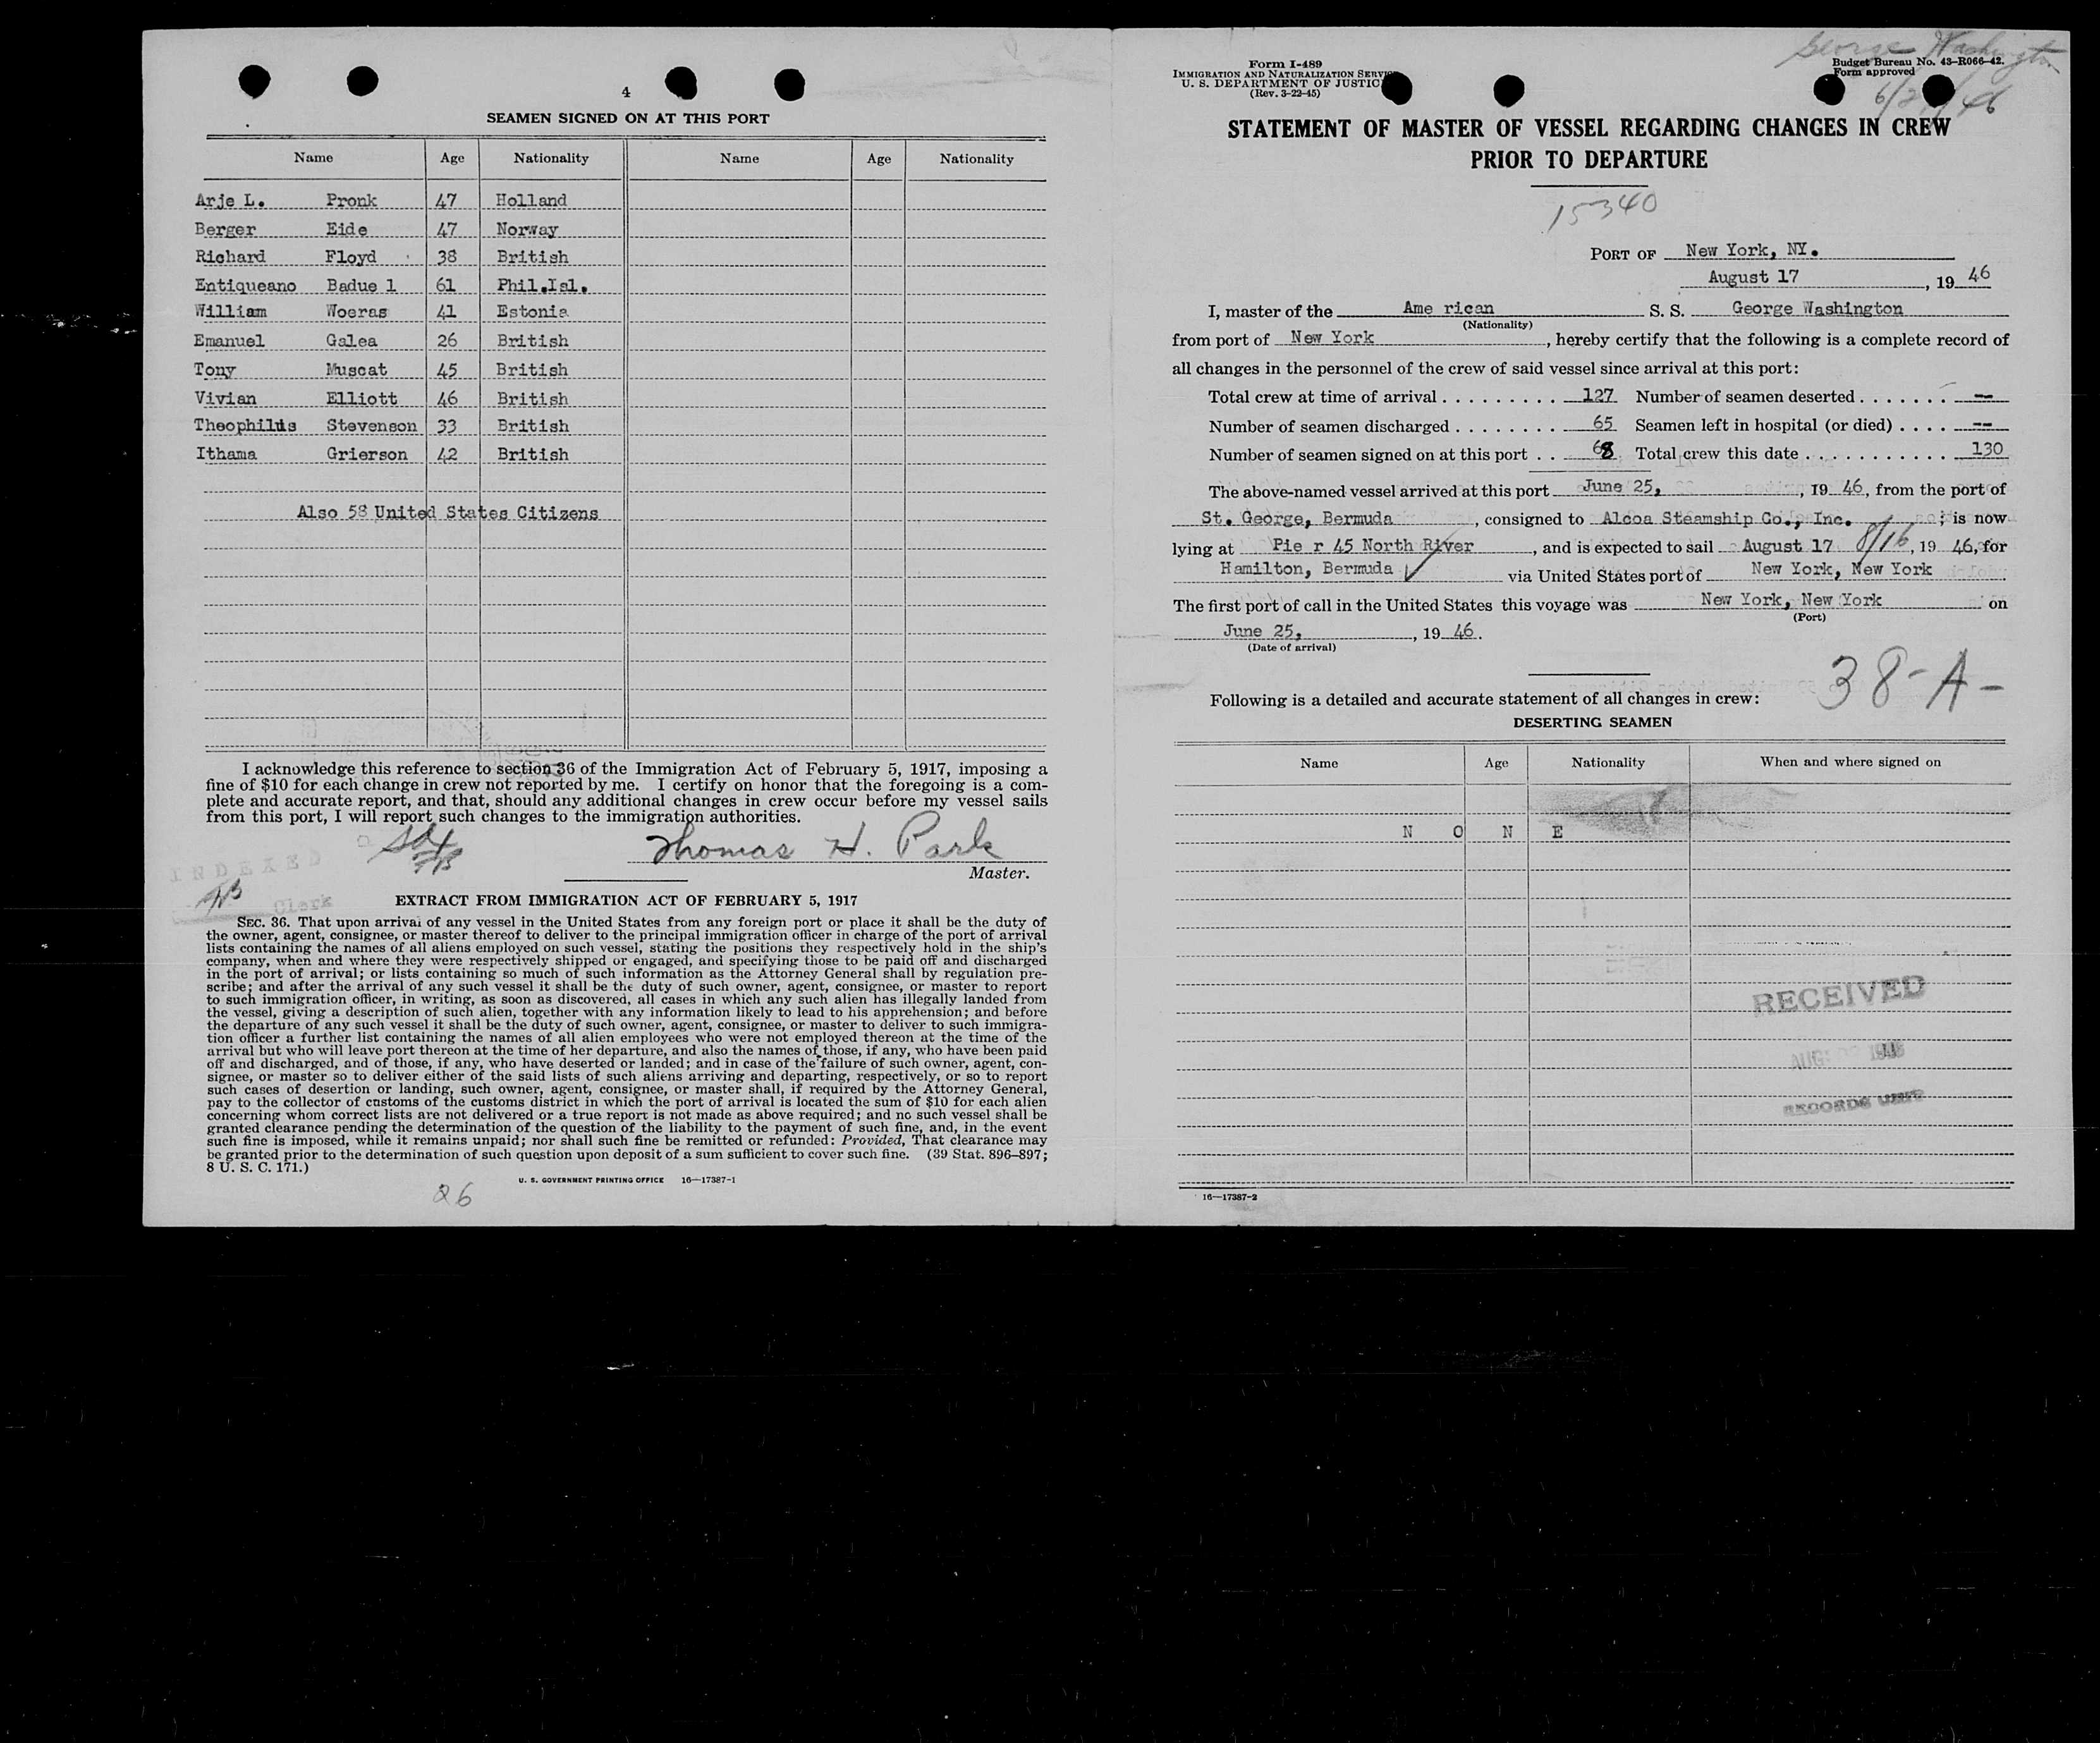 4
SEAMEN SIGNED ON AT THIS PORT
Name Age Nationality Name Age Nationality
Arje L. Pronk 47 Holland
Berger Eide 47 Norway
Richard Floyd 38 British
Entiqueano Badue l 61 Phil.Isl.
William Woeras 41 Estonia
Emanuel Galea 26 British
Tony Muscat 45 British
Vivian Elliott 46 British
Theophilus Stevenson 33 British
Ithama Grierson 42 British
Also 58 United States Citizens
I acknowledge this reference to section 36 of the Immigration Act of February 5, 1917, imposing a
fine of $10 for each change in crew not reported by me. I certify on honor that the foregoing is a com-
plete and accurate report, and that, should any additional changes in crew occur before my vessel sails
from this port, I will report such changes to the immigration authorities.
Thomas H. Park
Master.
INDEXED
Clerk
EXTRACT FROM IMMIGRATION ACT OF FEBRUARY 5, 1917
SEC. 36. That upon arrival of any vessel in the United States from any foreign port or place it shall be the duty of
the owner, agent, consignee, or master thereof to deliver to the principal immigration officer in charge of the port of arrival
lists containing the names of all aliens employed on such vessel, stating the positions they respectively hold in the ship's
company, when and where they were respectively shipped or engaged, and specifying those to be paid off and discharged
in the port of arrival; or lists containing so much of such information as the Attorney General shall by regulation pre-
scribe; and after the arrival of any such vessel it shall be the duty of such owner, agent, consignee, or master to report
to such immigration officer, in writing, as soon as discovered, all cases in which any such alien has illegally landed from
the vessel, giving a description of such alien, together with any information likely to lead to his apprehension; and before
the departure of any such vessel it shall be the duty of such owner, agent, consignee, or master to deliver to such immigra-
tion officer a further list containing the names of all alien employees who were not employed thereon at the time of the
arrival but who will leave port thereon at the time of her departure, and also the names of those, if any, who have been paid
off and discharged, and of those, if any, who have deserted or landed; and in case of the failure of such owner, agent, con-
signee, or master so to deliver either of the said lists of such aliens arriving and departing, respectively, or so to report
such cases of desertion or landing, such owner, agent, consignee, or master shall, if required by the Attorney General,
pay to the collector of customs of the customs district in which the port of arrival is located the sum of $10 for each alien
concerning whom correct lists are not delivered or a true report is not made as above required; and no such vessel shall be
granted clearance pending the determination of the question of the liability to the payment of such fine, and, in the event
such fine is imposed, while it remains unpaid; nor shall such fine be remitted or refunded: Provided, That clearance may
be granted prior to the determination of such question upon deposit of a sum sufficient to cover such fine. (39 Stat. 896–897;
8 U. S. C. 171.)
U. S. GOVERNMENT PRINTING OFFICE 16—17387-1
26
George Washington
Form I-489
IMMIGRATION AND NATURALIZATION
U. S. DEPARTMENT OF
(Rev. 3-22-45)
Budget Bureau No. 43–R066–42.
Form approved
STATEMENT OF MASTER OF VESSEL REGARDING CHANGES IN CREW
PRIOR TO DEPARTURE
15340
PORT OF New York, NY.
August 17, 19 46
I, master of the Ame rican S. S. George Washington
(Nationality)
from port of New York, hereby certify that the following is a complete record of
all changes in the personnel of the crew of said vessel since arrival at this port:
Total crew at time of arrival . . . . . . . . . 127 Number of seamen deserted . . . . . . . --
Number of seamen discharged . . . . . . . . 65 Seamen left in hospital (or died) . . . . --
Number of seamen signed on at this port . . 68 Total crew this date . . . . . . . . . . . 130
The above-named vessel arrived at this port June 25, , 19 46, from the port of
St. George, Bermuda, consigned to Alcoa Steamship Co., Inc. ; is now
lying at Pie r 45 North River, and is expected to sail August 17 8/16, 19 46, for
Hamilton, Bermuda ✓ via United States port of New York, New York
The first port of call in the United States this voyage was New York, New York on
(Port)
June 25, , 19 46.
(Date of arrival)
38-A-
Following is a detailed and accurate statement of all changes in crew:
DESERTING SEAMEN
Name Age Nationality When and where signed on
N O N E
RECEIVED
RECORDS UNIT
16—17387-2